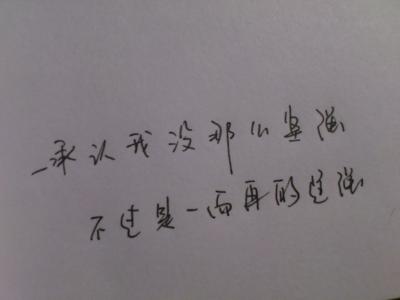 承认我没那么坚强
不过是一而再的逞强